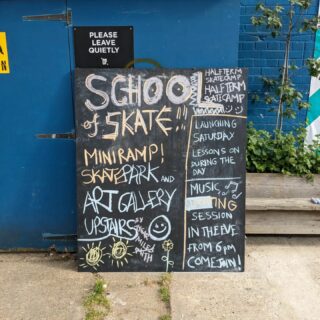 PLEASE
LEAVE
QUIETLY
SCHOOL
of SKATE!!
MINIRAMP!
SKATEPARK AND
ART GALLERY
UPSTAIRS
BY
MILES
SMITH
HALF TERM
SKATECAMP
HALF TERM
SKATECAMP
LAUNCHING
SATURDAY
LESSONS ON
DURING THE
DAY
MUSIC
SESSION
IN THE EVE
FROM 6PM
COME JOIN!